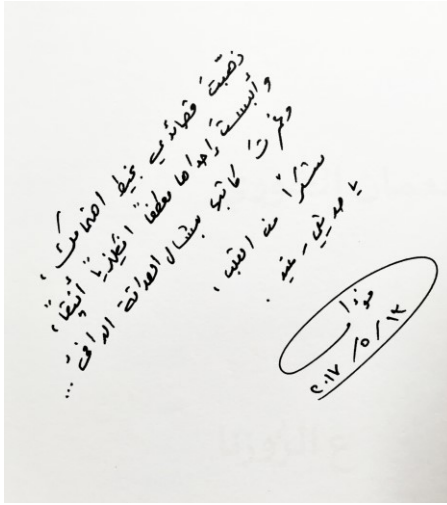 ذهّبتَ قصائدي بخيط اهتمامك،
وألبستَ إحداها معطفاً إنجليزياً أنيقاً،
كاتبها بشال الصداقة الدافئ...
شكراً من القلب،
يا صديقي
سوزان
١٢ / ٥ / ٢٠١٧